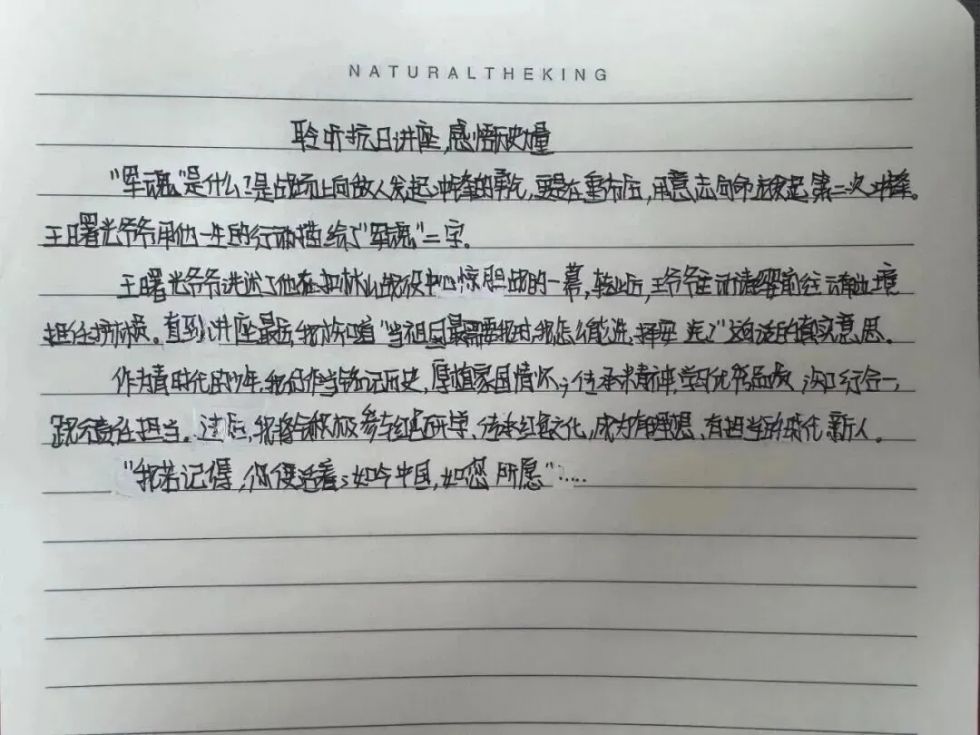 NATURALTHEKING
聆听抗日讲座,感悟历史力量
“军魂”是什么?是战场上向敌人发起冲锋的勇气,更是在重伤后,用意志向命运发起第二次冲锋。
王曙光爷爷用他一生的行动描绘了“军魂”二字。
王曙光爷爷讲述了他在扣林山战役中心惊胆战的一幕,转业后,王爷爷主动请缨前往云南边境
担任排雷员。直到讲座最后,我才知道“当祖国最需要我时,我怎么能选择安逸?”这句话的真实意思。
作为青时代的少年,我们应当铭记历史,厚植家国情怀;传承精神,学习优秀品质,知行合一,
践行责任担当。过后,我将积极参与红色研学、传承红色文化,成为有理想、有担当的时代新人。
“我若记得,你便活着;如今中国,如您所愿”……